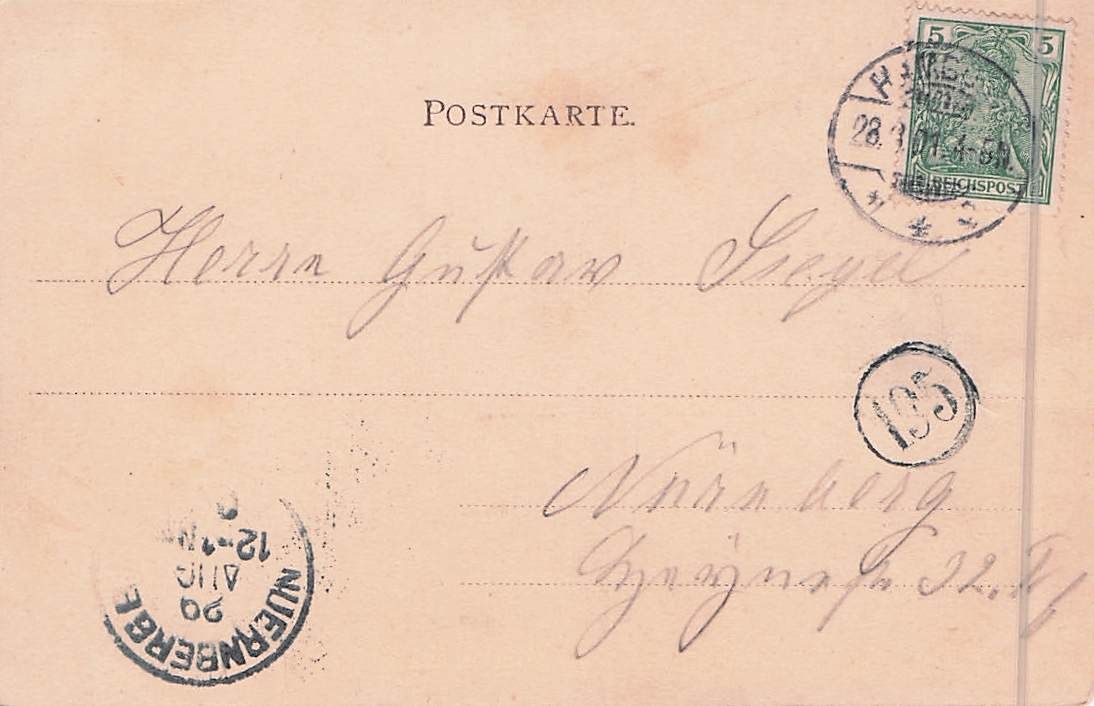 POSTKARTE.
5 5
REICHSPOST
28. 01. 4-5N.
Herrn Gustav Siegel
195
Nürnberg
32.
NUERNBERG
29 AUG
12-1N